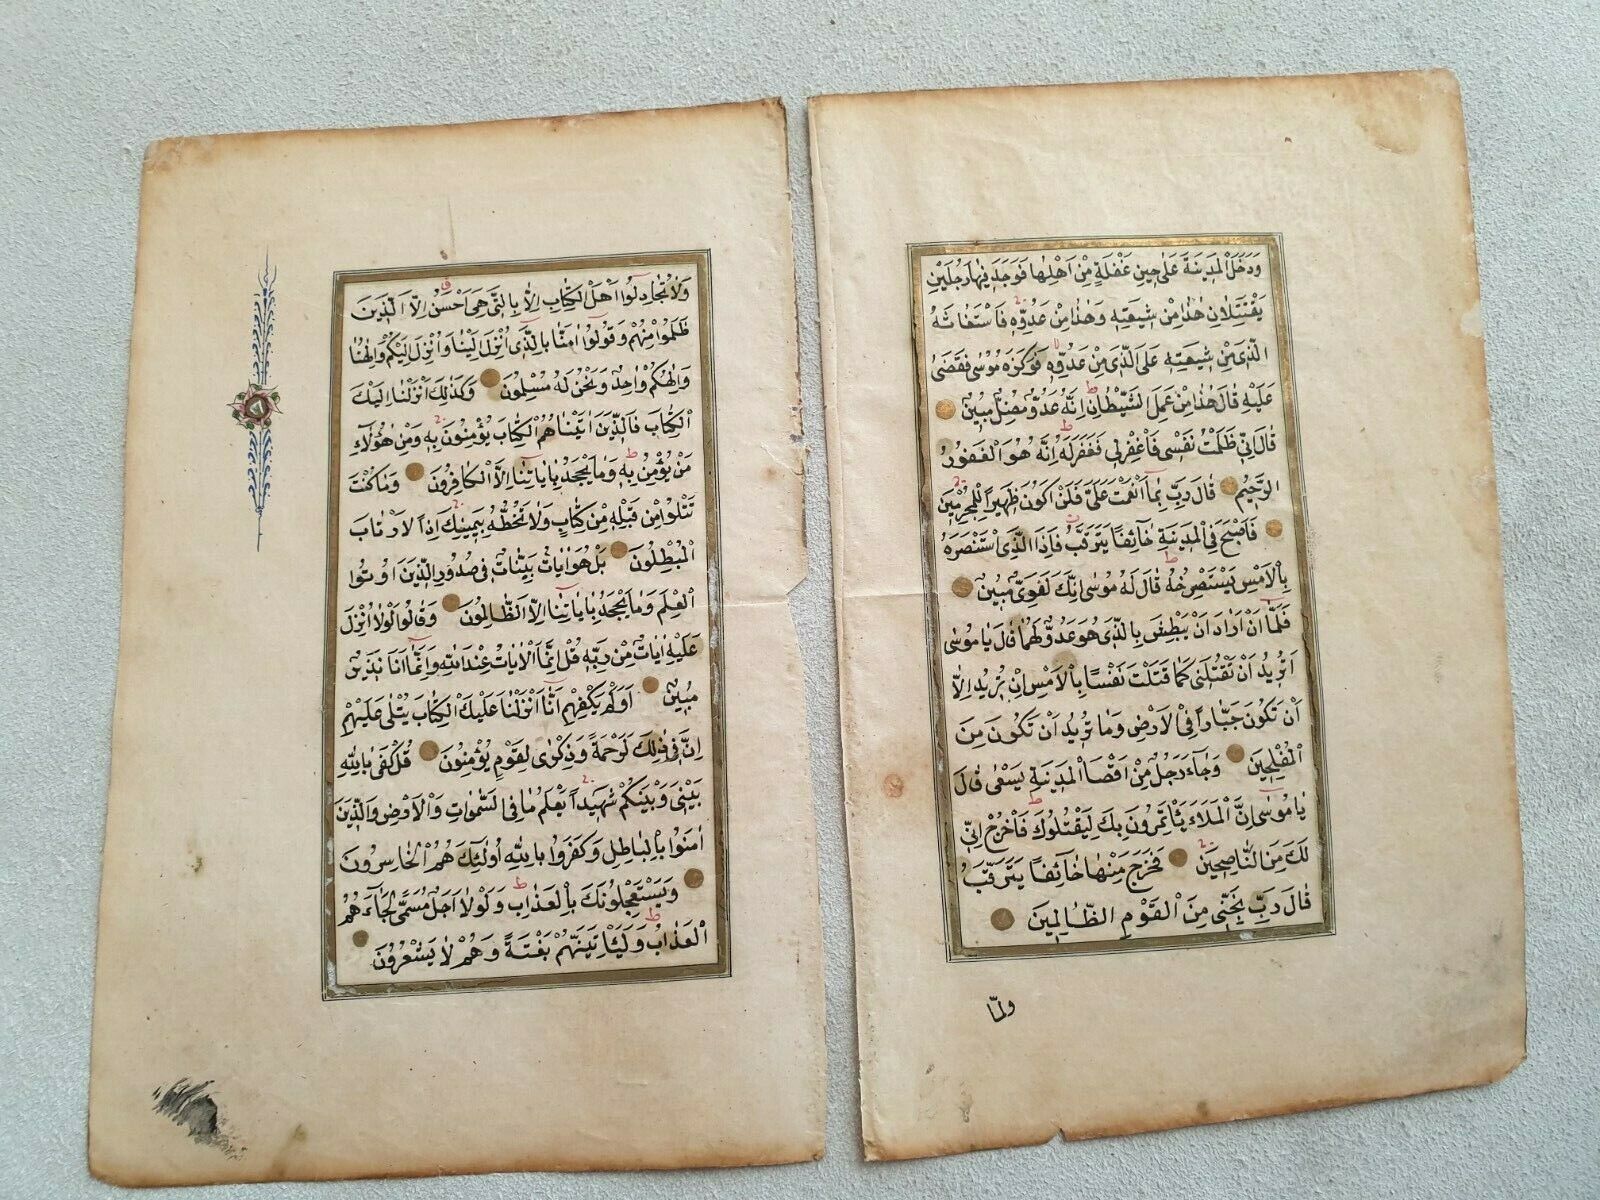 وَدَخَلَ الْمَدِينَةَ عَلَى حِينِ غَفْلَةٍ مِنْ اَهْلِهَا فَوَجَدَ فِيهَا رَجُلَيْنِ
يَقْتَتِلَانِ هٰذَا مِنْ شِيعَتِهِ وَهٰذَا مِنْ عَدُوِّهِ فَاسْتَغَاثَهُ
الَّذِى مِنْ شِيعَتِهِ عَلَى الَّذِى مِنْ عَدُوِّهِ فَوَكَزَهُ مُوسٰى فَقَضٰى
عَلَيْهِ قَالَ هٰذَا مِنْ عَمَلِ الشَّيْطَانِ اِنَّهُ عَدُوٌّ مُضِلٌّ مُبِينٌ
قَالَ رَبِّ اِنِّى ظَلَمْتُ نَفْسِى فَاغْفِرْلِى فَغَفَرَ لَهُ اِنَّهُ هُوَ الْغَفُورُ
الرَّحِيمُ قَالَ رَبِّ بِمَا اَنْعَمْتَ عَلَىَّ فَلَنْ اَكُونَ ظَهِيرًا لِلْمُجْرِمِينَ
فَاَصْبَحَ فِى الْمَدِينَةِ خَائِفًا يَتَرَقَّبُ فَاِذَا الَّذِى اسْتَنْصَرَهُ
بِالْاَمْسِ يَسْتَصْرِخُهُ قَالَ لَهُ مُوسٰى اِنَّكَ لَغَوِىٌّ مُبِينٌ
فَلَمَّا اَنْ اَرَادَ اَنْ يَبْطِشَ بِالَّذِى هُوَ عَدُوٌّ لَهُمَا قَالَ يَا مُوسٰى
اَتُرِيدُ اَنْ تَقْتُلَنِى كَمَا قَتَلْتَ نَفْسًا بِالْاَمْسِ اِنْ تُرِيدُ اِلَّا
اَنْ تَكُونَ جَبَّارًا فِى الْاَرْضِ وَمَا تُرِيدُ اَنْ تَكُونَ مِنَ
الْمُصْلِحِينَ وَجَاءَ رَجُلٌ مِنْ اَقْصَا الْمَدِينَةِ يَسْعٰى قَالَ
يَا مُوسٰى اِنَّ الْمَلَاَ يَأْتَمِرُونَ بِكَ لِيَقْتُلُوكَ فَاخْرُجْ اِنِّى
لَكَ مِنَ النَّاصِحِينَ فَخَرَجَ مِنْهَا خَائِفًا يَتَرَقَّبُ
قَالَ رَبِّ نَجِّنِى مِنَ الْقَوْمِ الظَّالِمِينَ
ولمّا
وَلَا تُجَادِلُوا اَهْلَ الْكِتَابِ اِلَّا بِالَّتِى هِىَ اَحْسَنُ اِلَّا الَّذِينَ
ظَلَمُوا مِنْهُمْ وَقُولُوا اٰمَنَّا بِالَّذِى اُنْزِلَ اِلَيْنَا وَاُنْزِلَ اِلَيْكُمْ وَاِلٰهُنَا
وَاِلٰهُكُمْ وَاحِدٌ وَنَحْنُ لَهُ مُسْلِمُونَ وَكَذٰلِكَ اَنْزَلْنَا اِلَيْكَ
الْكِتَابَ فَالَّذِينَ اٰتَيْنَاهُمُ الْكِتَابَ يُؤْمِنُونَ بِهِ وَمِنْ هٰؤُلَاءِ
مَنْ يُؤْمِنُ بِهِ وَمَا يَجْحَدُ بِاٰيَاتِنَا اِلَّا الْكَافِرُونَ وَمَا كُنْتَ
تَتْلُوا مِنْ قَبْلِهِ مِنْ كِتَابٍ وَلَا تَخُطُّهُ بِيَمِينِكَ اِذًا لَارْتَابَ
الْمُبْطِلُونَ بَلْ هُوَ اٰيَاتٌ بَيِّنَاتٌ فِى صُدُورِ الَّذِينَ اُوتُوا
الْعِلْمَ وَمَا يَجْحَدُ بِاٰيَاتِنَا اِلَّا الظَّالِمُونَ وَقَالُوا لَوْلَا اُنْزِلَ
عَلَيْهِ اٰيَاتٌ مِنْ رَبِّهِ قُلْ اِنَّمَا الْاٰيَاتُ عِنْدَ اللّٰهِ وَاِنَّمَا اَنَا نَذِيرٌ
مُبِينٌ اَوَلَمْ يَكْفِهِمْ اَنَّا اَنْزَلْنَا عَلَيْكَ الْكِتَابَ يُتْلٰى عَلَيْهِمْ
اِنَّ فِى ذٰلِكَ لَرَحْمَةً وَذِكْرٰى لِقَوْمٍ يُؤْمِنُونَ قُلْ كَفٰى بِاللّٰهِ
بَيْنِى وَبَيْنَكُمْ شَهِيدًا يَعْلَمُ مَا فِى السَّمٰوَاتِ وَالْاَرْضِ وَالَّذِينَ
اٰمَنُوا بِالْبَاطِلِ وَكَفَرُوا بِاللّٰهِ اُولٰئِكَ هُمُ الْخَاسِرُونَ
وَيَسْتَعْجِلُونَكَ بِالْعَذَابِ وَلَوْلَا اَجَلٌ مُسَمًّى لَجَاءَهُمُ
الْعَذَابُ وَلَيَأْتِيَنَّهُمْ بَغْتَةً وَهُمْ لَا يَشْعُرُونَ